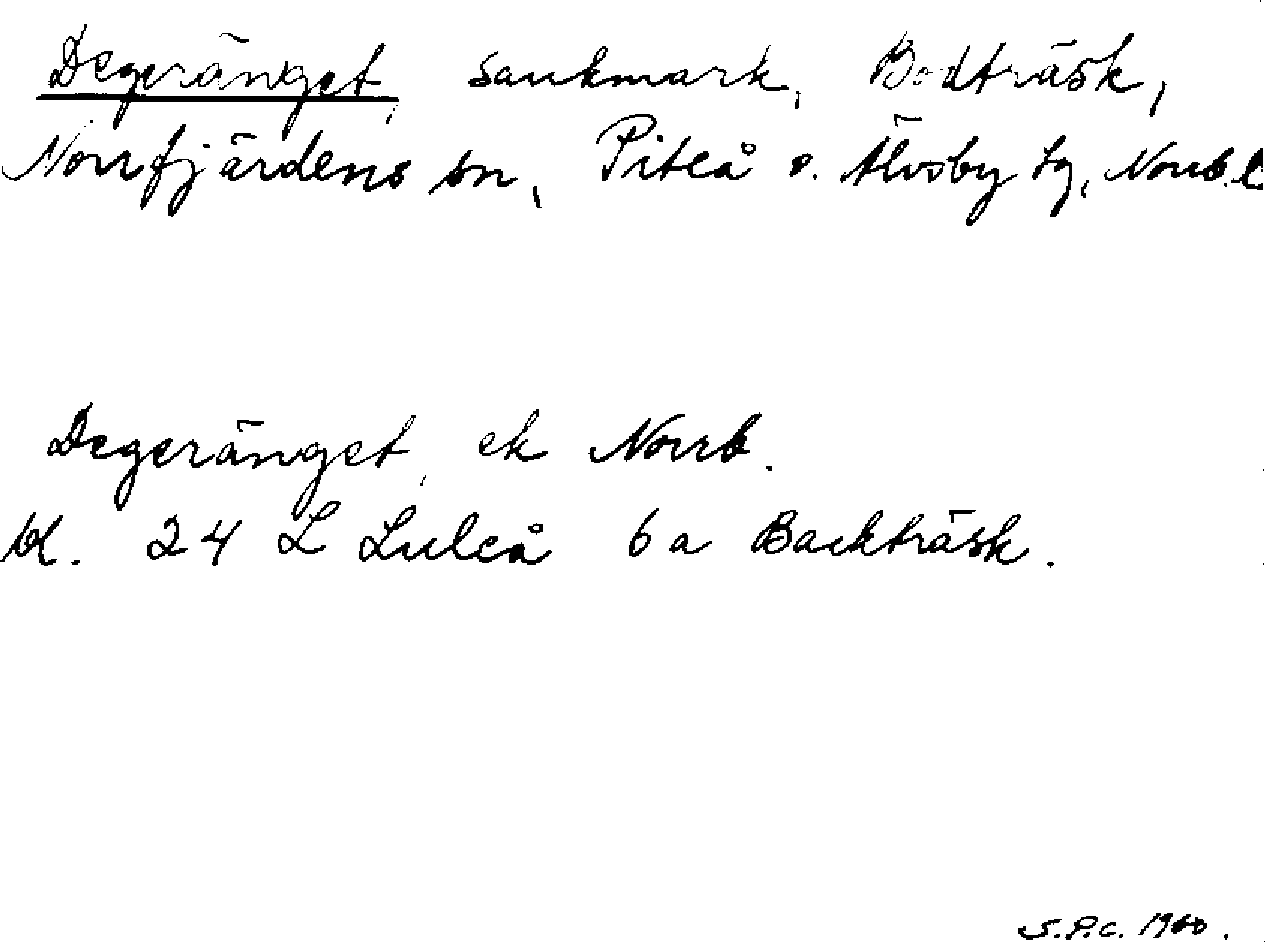 Degeränget, sankmark, Bodträsk,
Norrfjärdens sn, Piteå o. Älvsby tg, Norrb. l
Degeränget, ek Norrb.
bl. 24 L Luleå 6a Backträsk.
S.P.C. 1960.